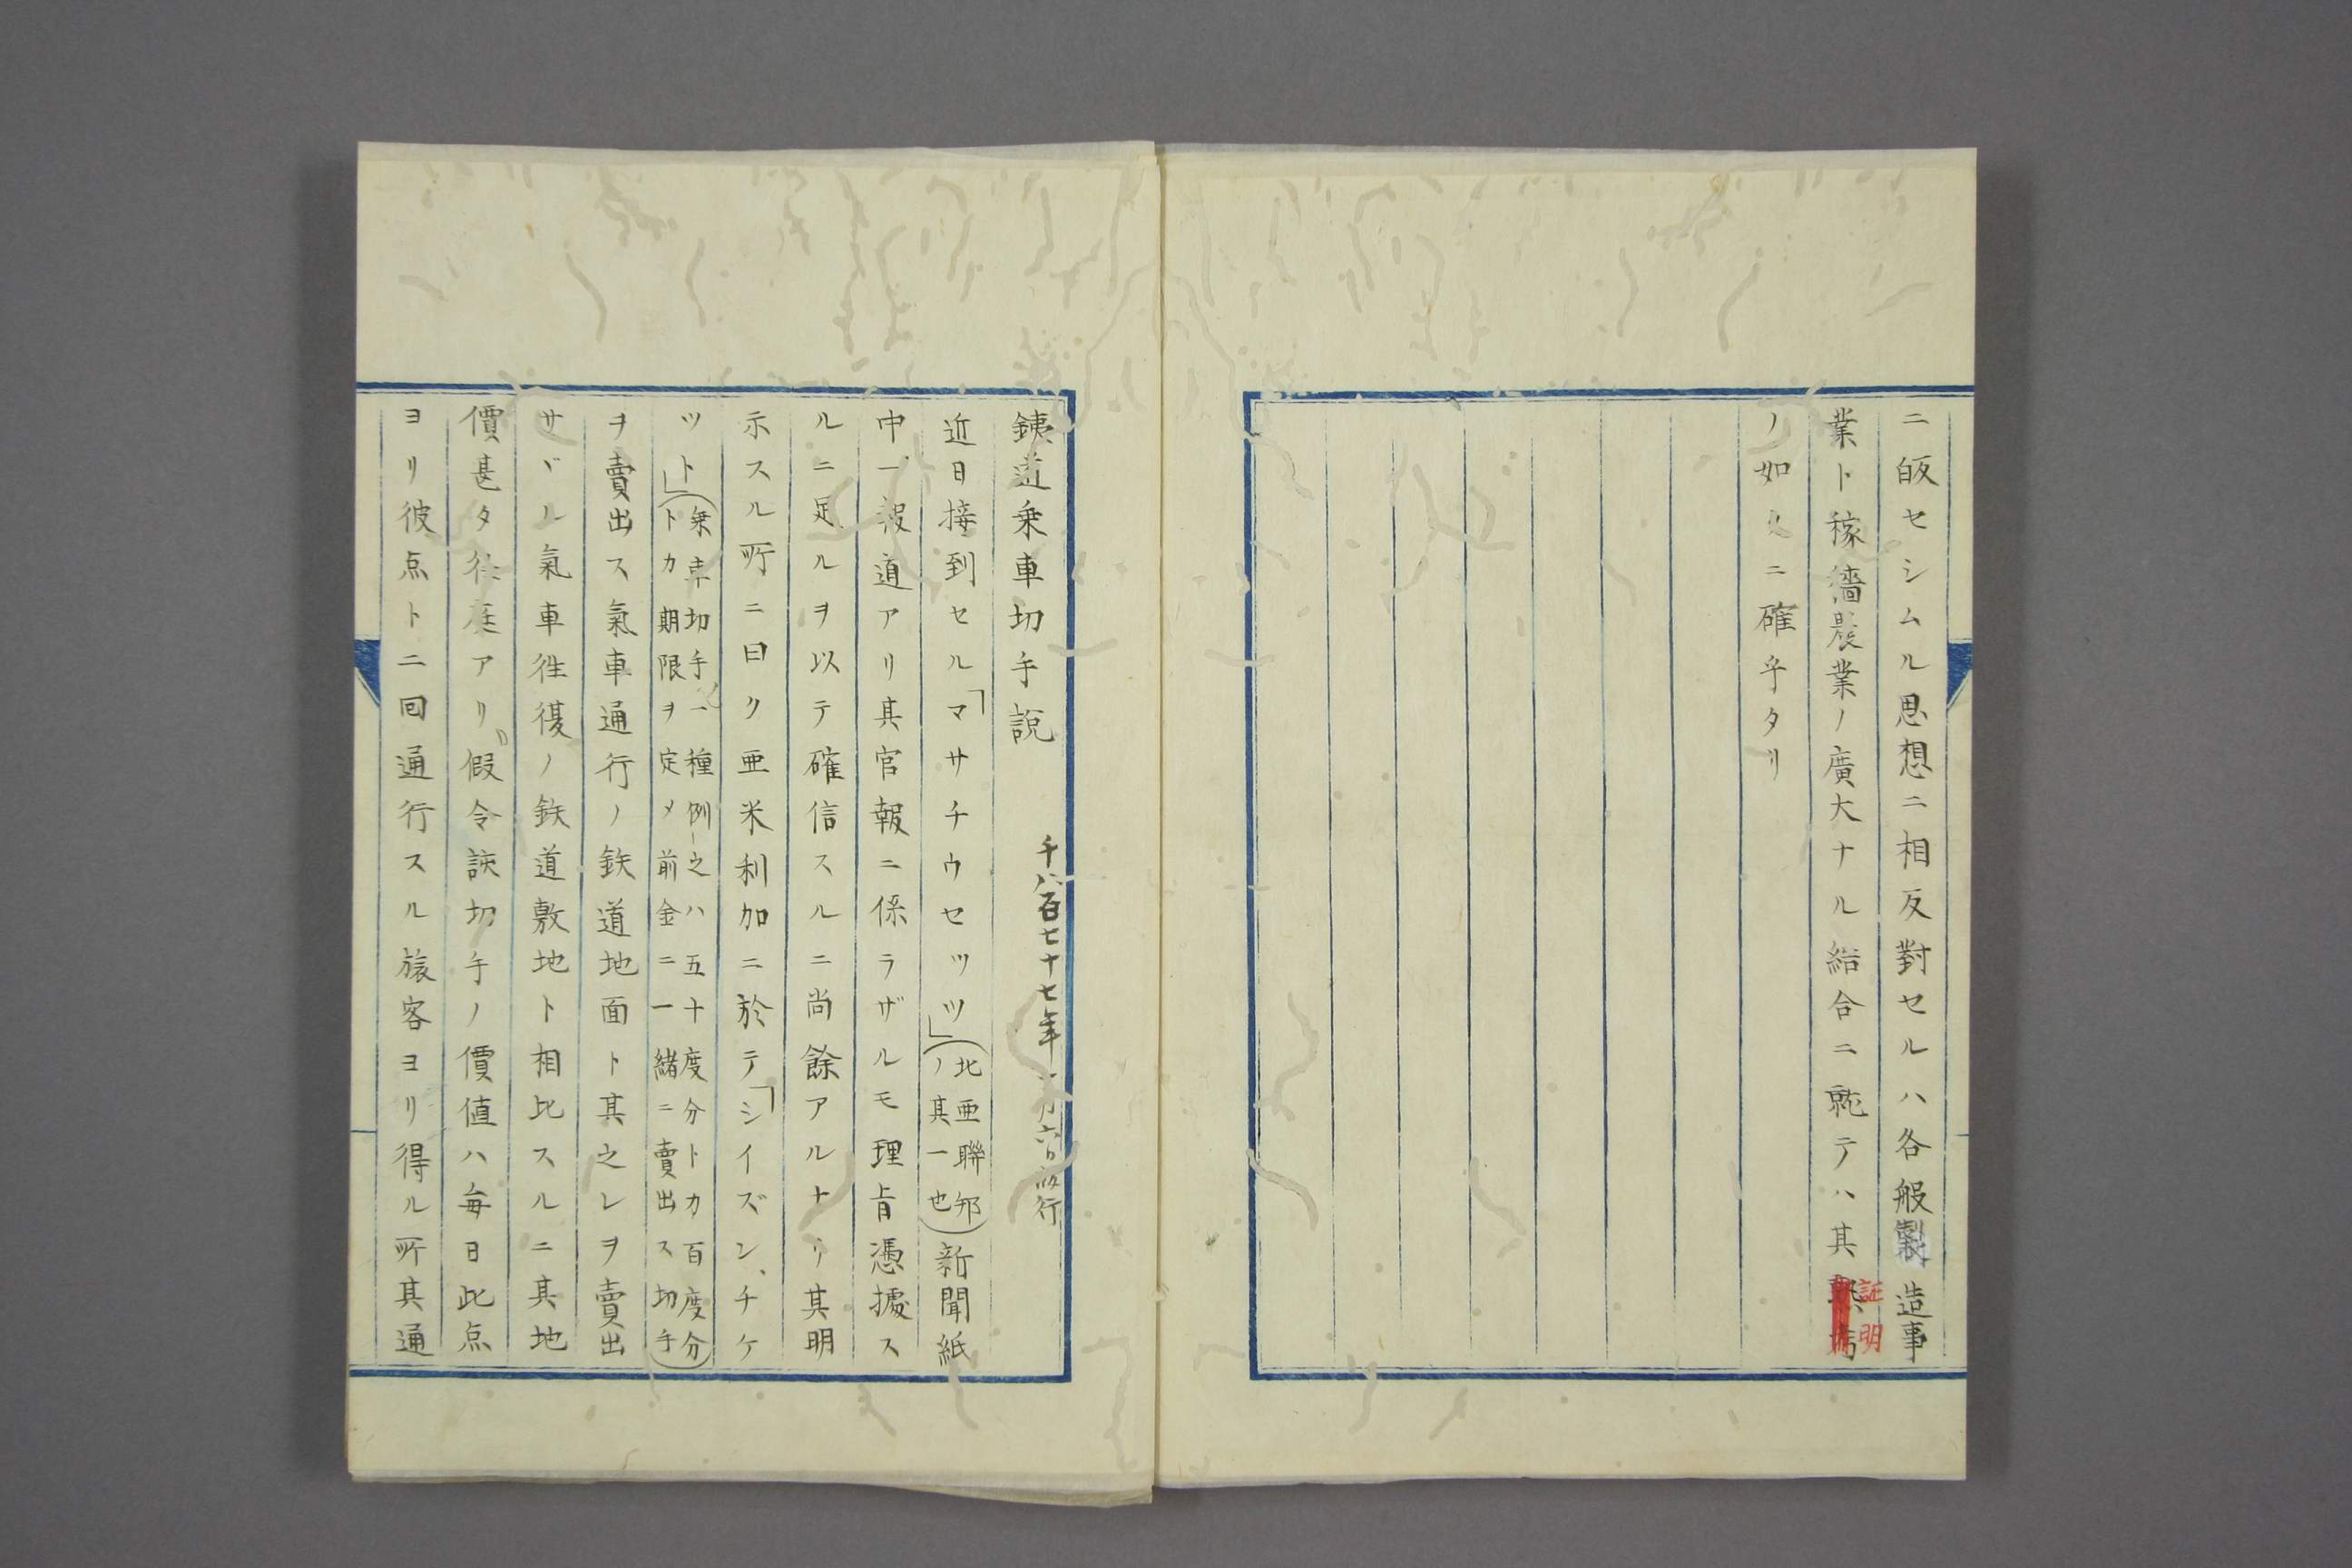 ニ皈セシムル思想ニ相反對セルハ各般製造事
業ト稼穡農業ノ廣大ナル結合ニ就テハ其證明
ノ如クニ確乎タリ
銕道乗車切手説
千八百七十七年一月六日版行
近日接到セル「マサチウセツツ」(北亜聯邦ノ其一也)新聞紙
中一報道アリ其官報ニ係ラザルモ理旨憑據ス
ルニ足ルヲ以テ確信スルニ尚餘アルナリ其明
示スル所ニ曰ク亜米利加ニ於テ「シイズン、チケ
ツト」(乗車切手ノ一種例之ハ五十度分トカ百度分トカ期限ヲ定メ前金ニ一緒ニ賣出ス切手)
ヲ賣出ス氣車通行ノ鉄道地面ト其之レヲ賣出
サヾル氣車徃復ノ鉄道敷地ト相比スルニ其地
價甚タ径庭アリ假令該切手ノ價値ハ毎日此点
ヨリ彼点ト二回通行スル旅客ヨリ得ル所其通